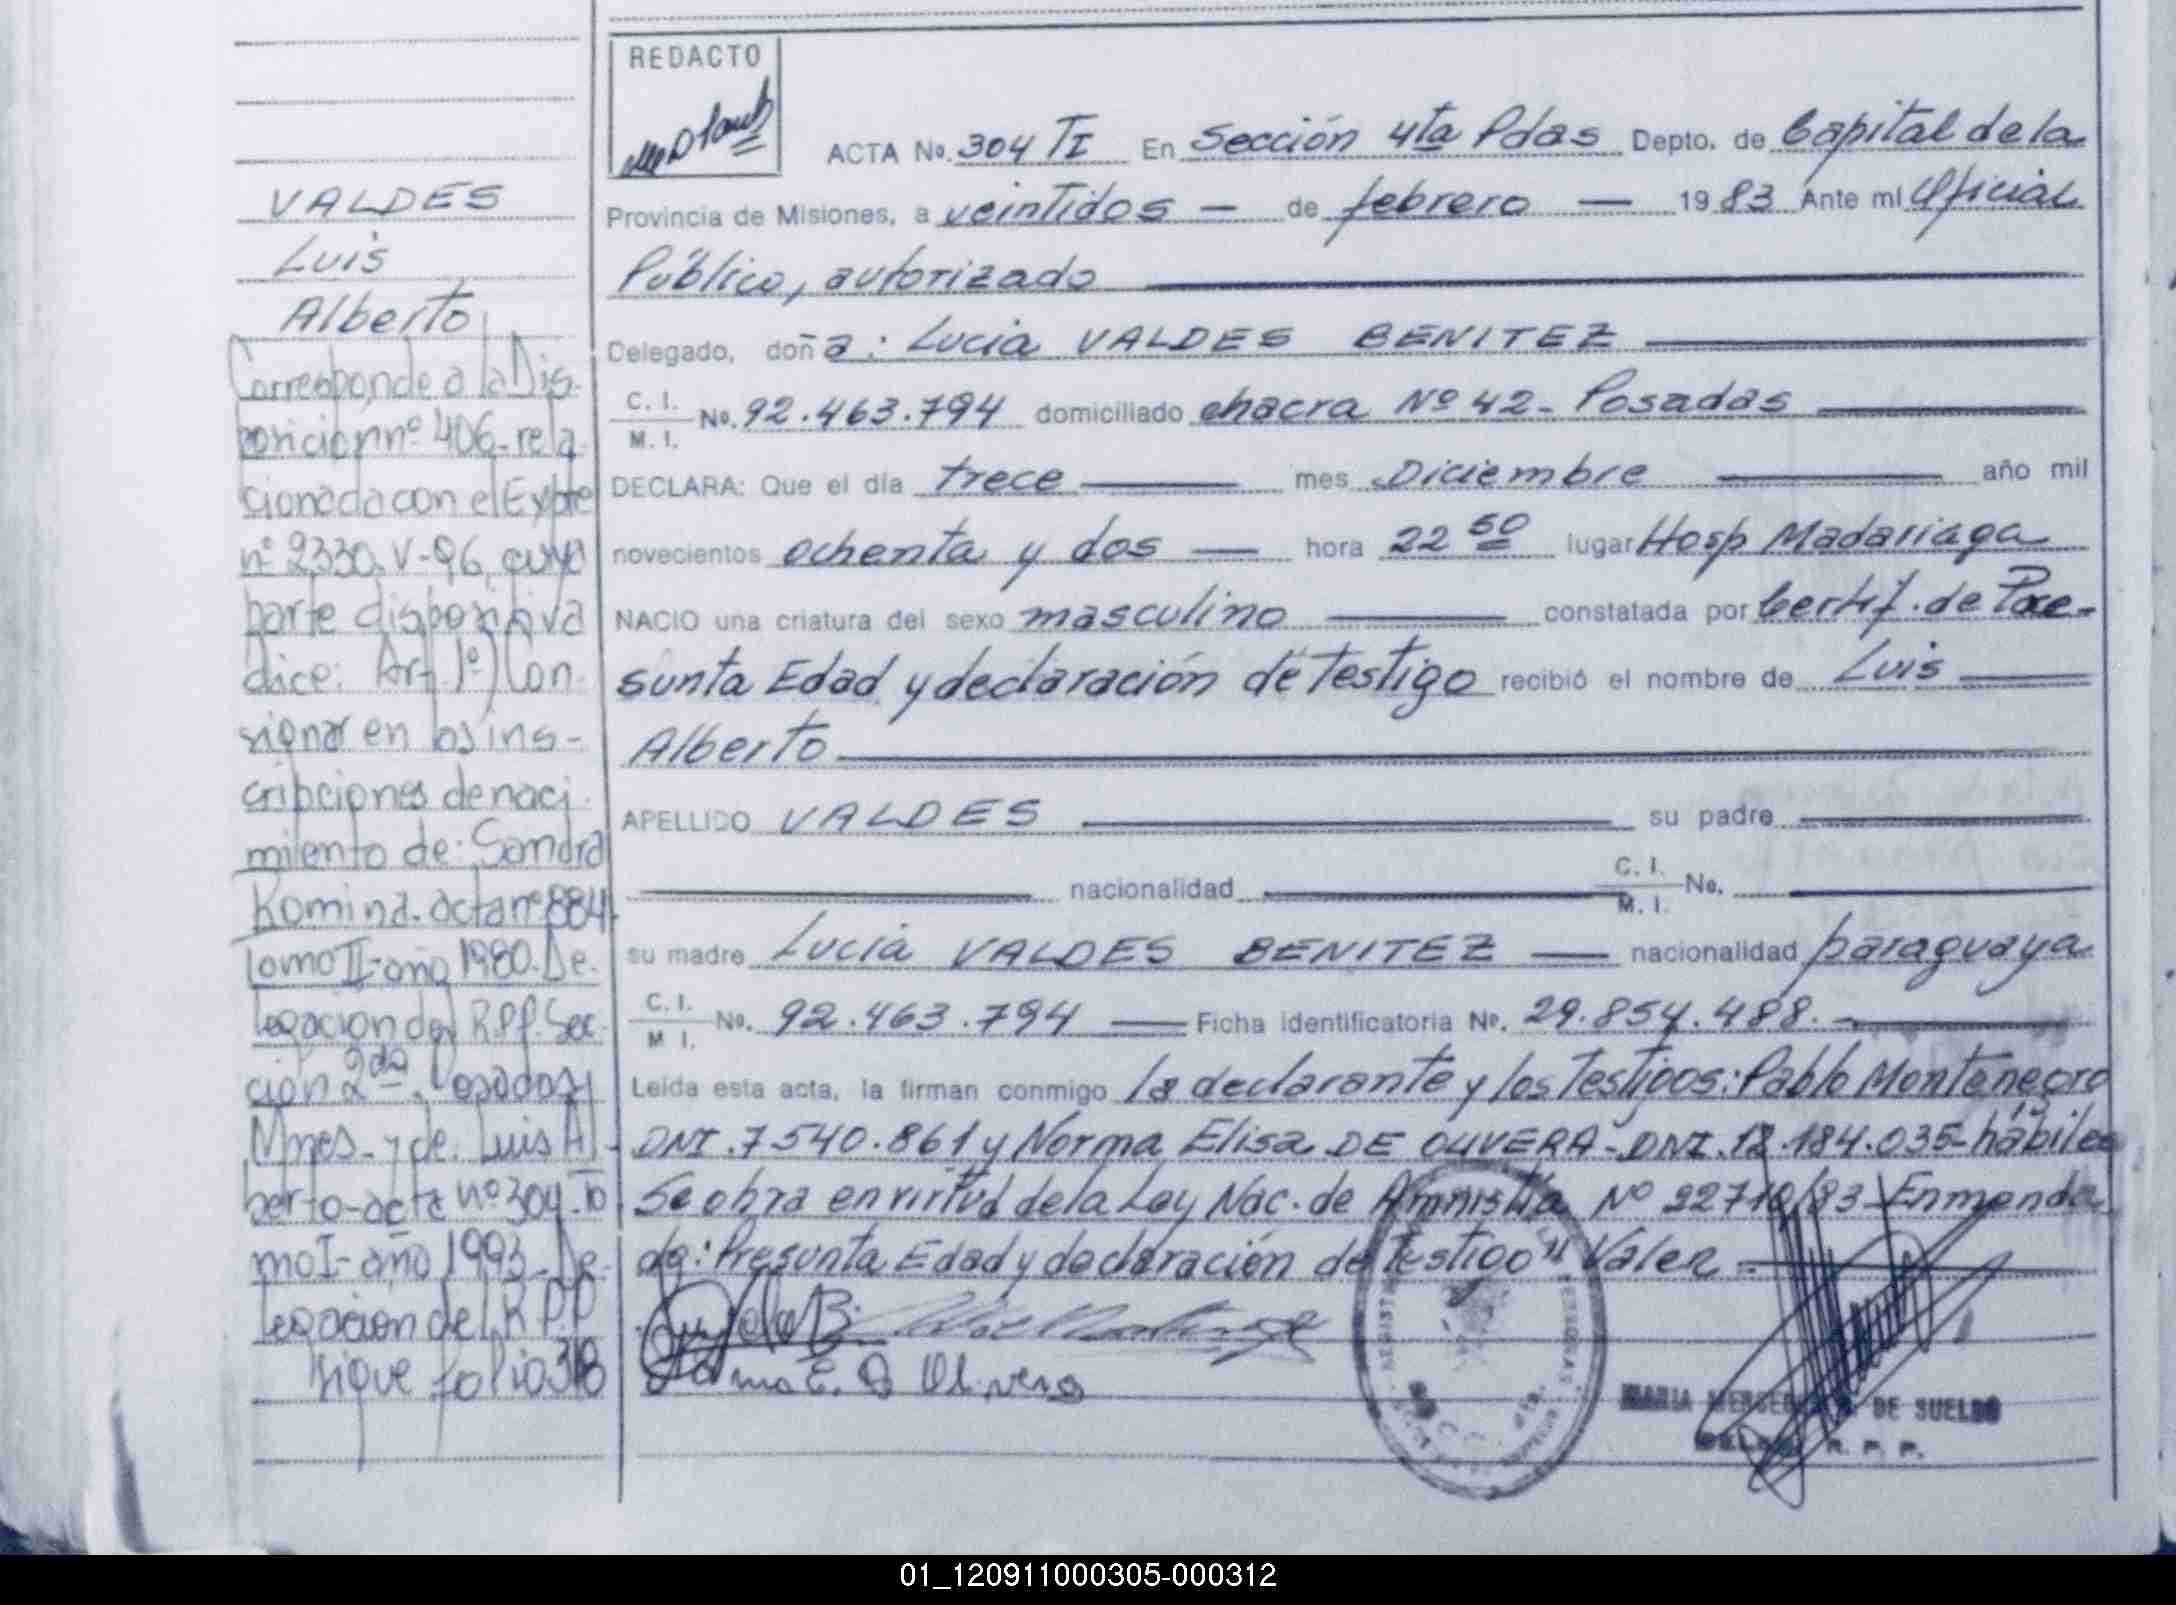 REDACTO
ACTA No. 304 TI En Sección 4ta Pdas Depto. de Capital de la
Provincia de Misiones, a veintidos — de febrero — 1983 Ante mí Oficial
Público, autorizado
Delegado, doña: Lucia VALDES BENITEZ
C. I.
M. I.
No. 92.463.794 domiciliado chacra Nº 42- Posadas
DECLARA: Que el día trece mes Diciembre año mil
novecientos ochenta y dos — hora 22 50 lugar Hosp Madariaga
NACIO una criatura del sexo masculino constatada por Certif. de Pre-
sunta Edad y declaración de Testigo recibió el nombre de Luis
Alberto
APELLIDO VALDES su padre
nacionalidad C. I.
M. I. No.
su madre Lucia VALDES BENITEZ — nacionalidad paraguaya
C. I.
M I.
No. 92.463.794 — Ficha identificatoria No. 29.854.488.
Leída esta acta, la firman conmigo la declarante y los Testigos: Pablo Montenegro
DNI. 7.540.861 y Norma Elisa DE OLIVERA - DNI. 12.184.035- hábiles
Se obra en virtud de la Ley Nac. de Amnistía Nº 22710/83 - Enmenda
do: "Presunta Edad y declaración de Testigo" Valen -
Norma E. D Olivera
MARIA DE SUELDO
R. P. P.
VALDES
Luis
Alberto
Corresponde a la Dis-
posición nº 406- rela
cionada con el Expte
nº 2330. V-96, cuya
parte dispositiva
dice: Art. 1º) Con
signar en las ins-
cripciones de naci-
miento de: Sandra
Romina. acta nº 884
Tomo II- año 1980. De-
legación del R.P.P. Sec-
ción 2da. Posadas
Mnes- y de: Luis Al-
berto- acta nº 304- To
mo I- año 1993- De-
legación del R.P.P
sigue folio 318
01_120911000305-000312